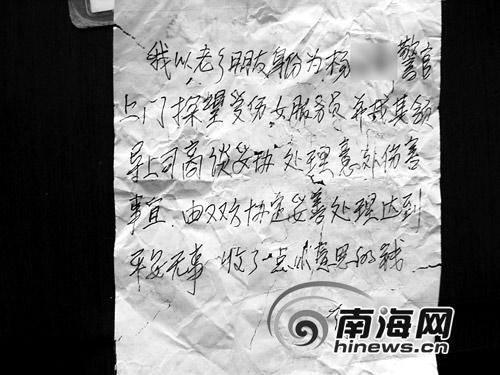 我以老乡朋友身份为杨 警官
上门探望受伤女服务员 并找其领
导上司商谈妥协处理意外伤害
事宜.由双方协定妥善处理达到
平安无事 收了一点小意思的钱
南海网
hinews.cn